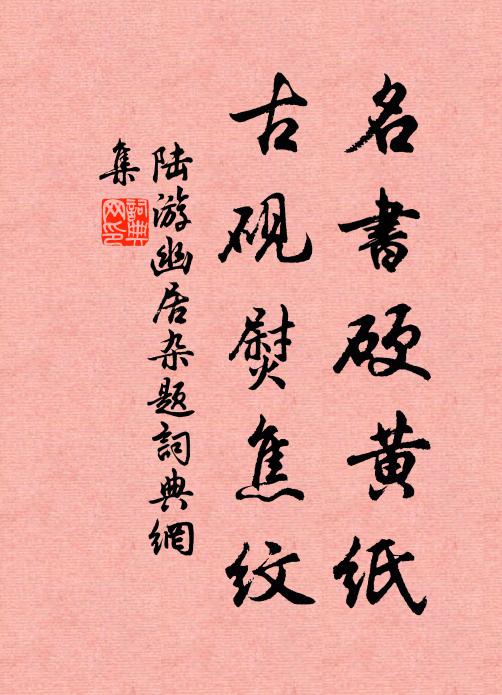 名書硬黄紙
古硯熨焦紋
陆游幽居杂题詞典網
集
詞典網印